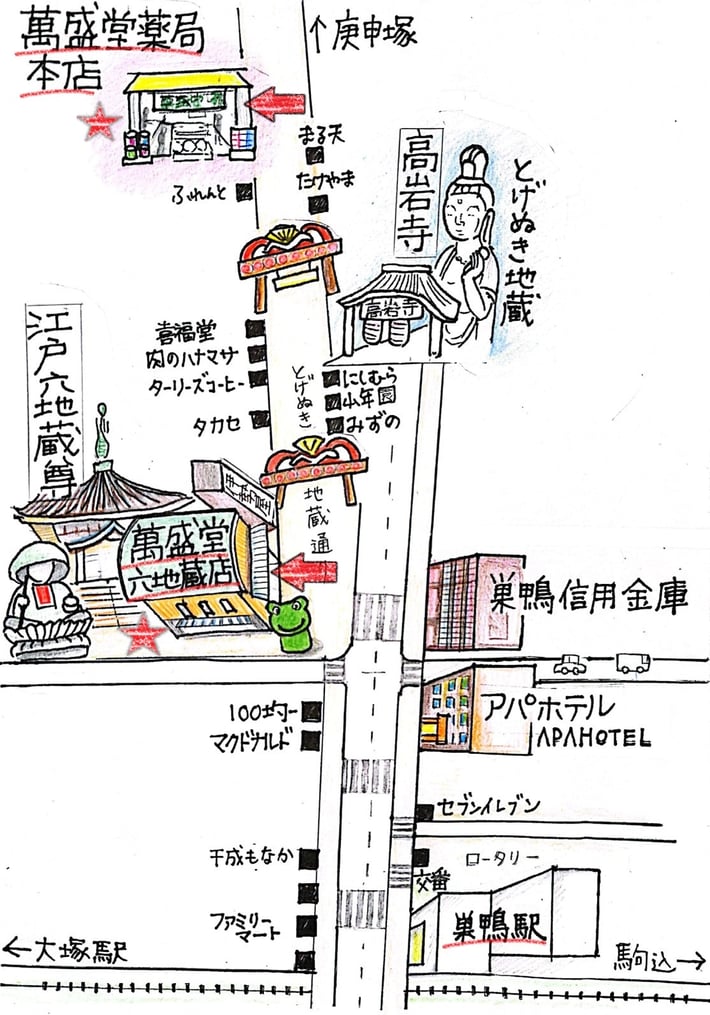 萬盛堂薬局
本店
↑庚申塚
まる天
たけやま
ふれんど
高岩寺
とげぬき地蔵
高岩寺
江戸六地蔵尊
喜福堂
肉のハナマサ
ターリーズコーヒー
タカセ
とげぬき
地蔵通
にしむら
少年園
みずの
萬盛堂
六地蔵店
巣鴨信用金庫
100均一
マクドナルド
アパホテル
APAHOTEL
セブンイレブン
千成もなか
交番
ロータリー
ファミリー
マート
巣鴨駅
←大塚駅
駒込→